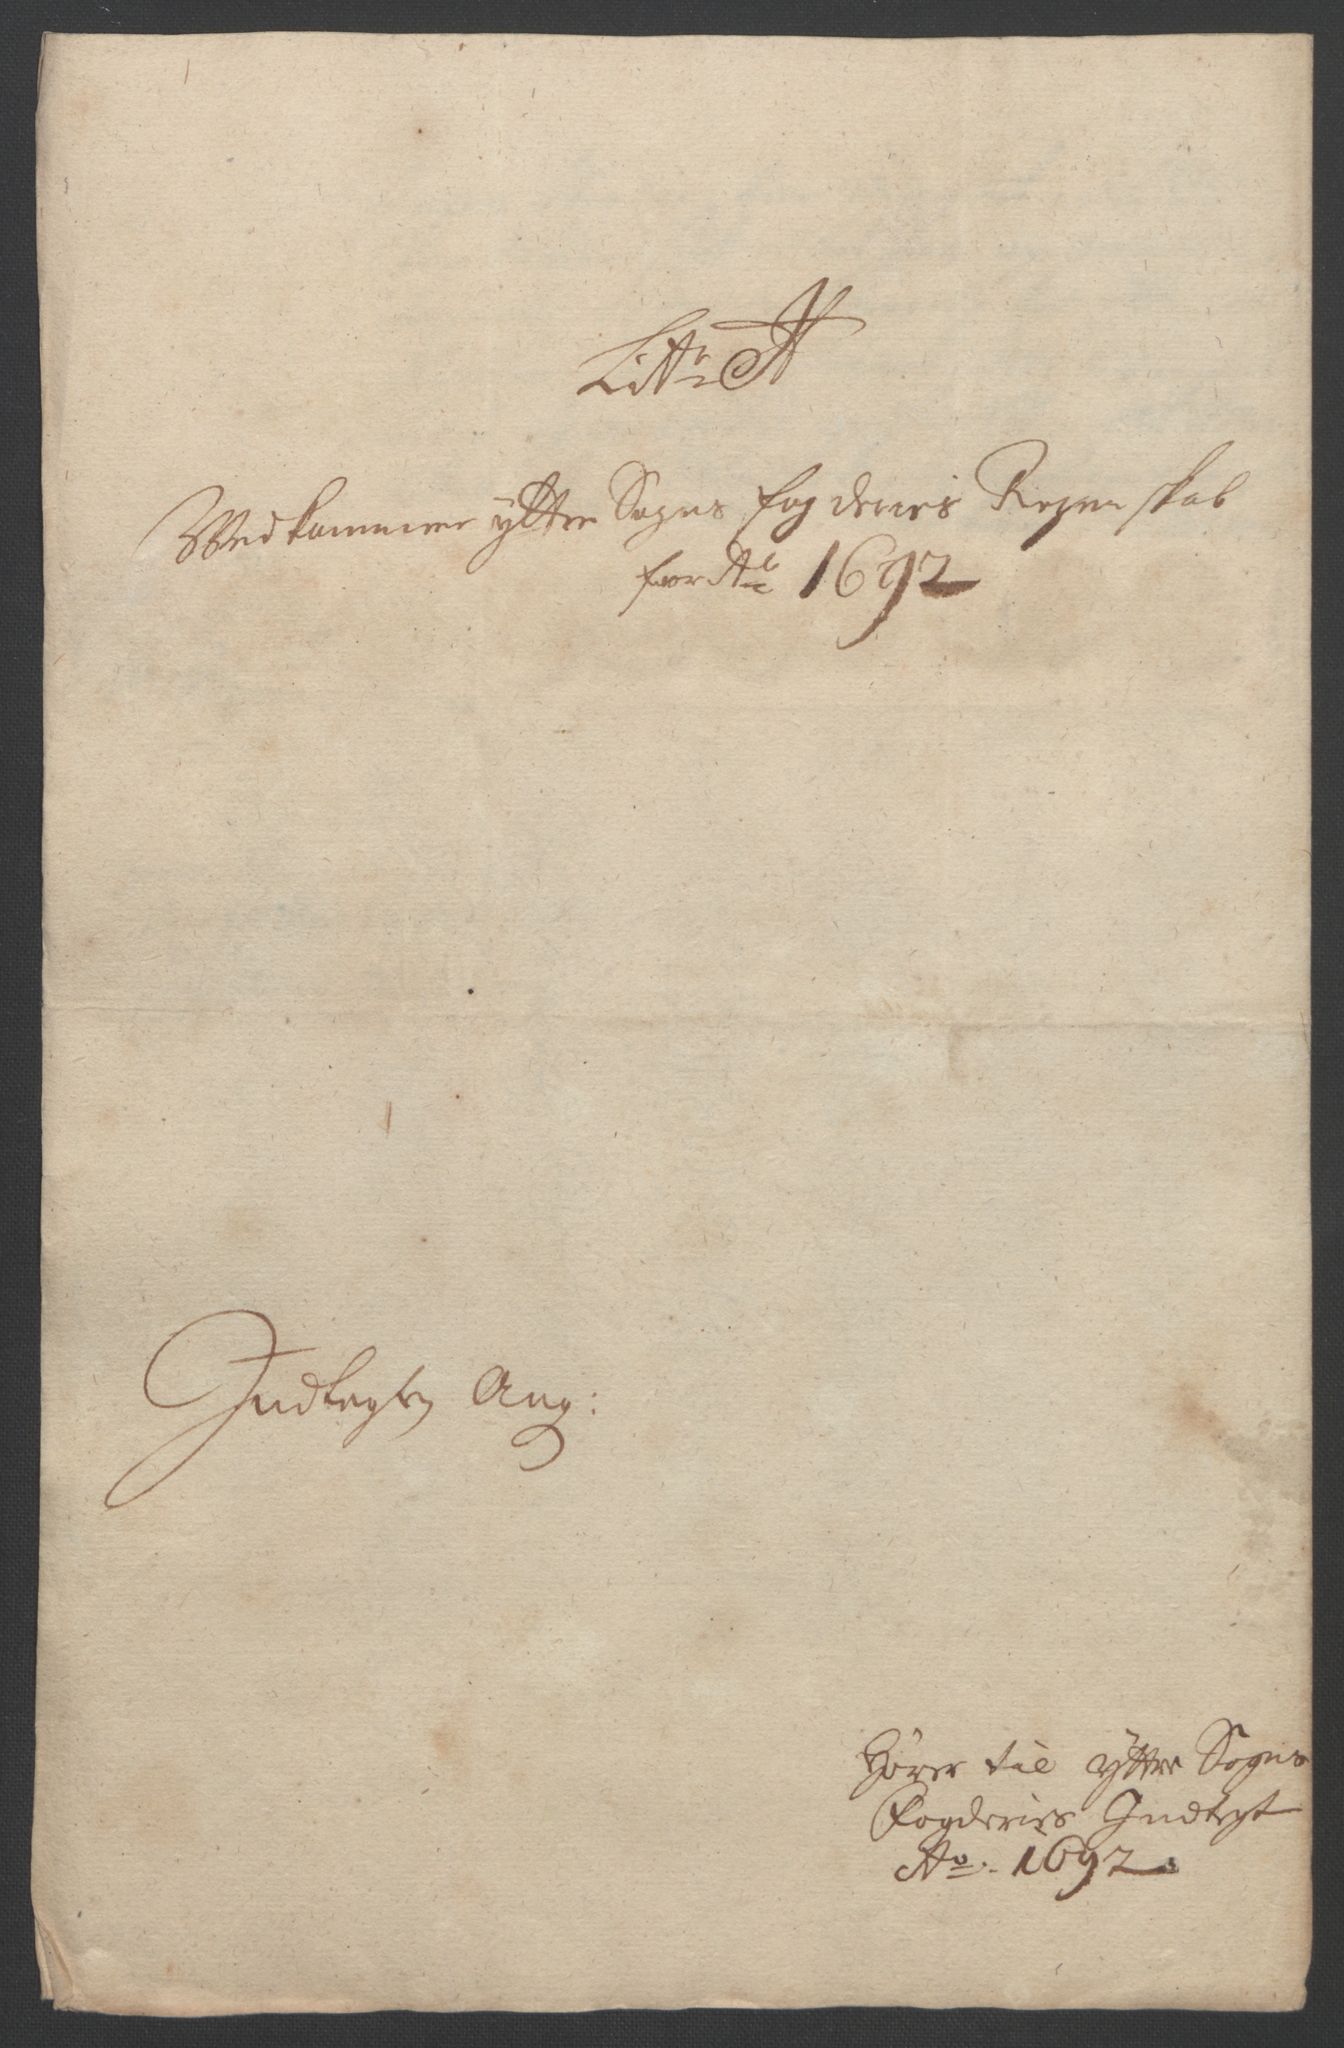 Litr A
Wedkommer ytter Sogns fogderies Regenskab
for Ao 1692
Indtegten Ang:
Hører til Yttre Sogns
Fogderies Indtegt
Ao. 1692.